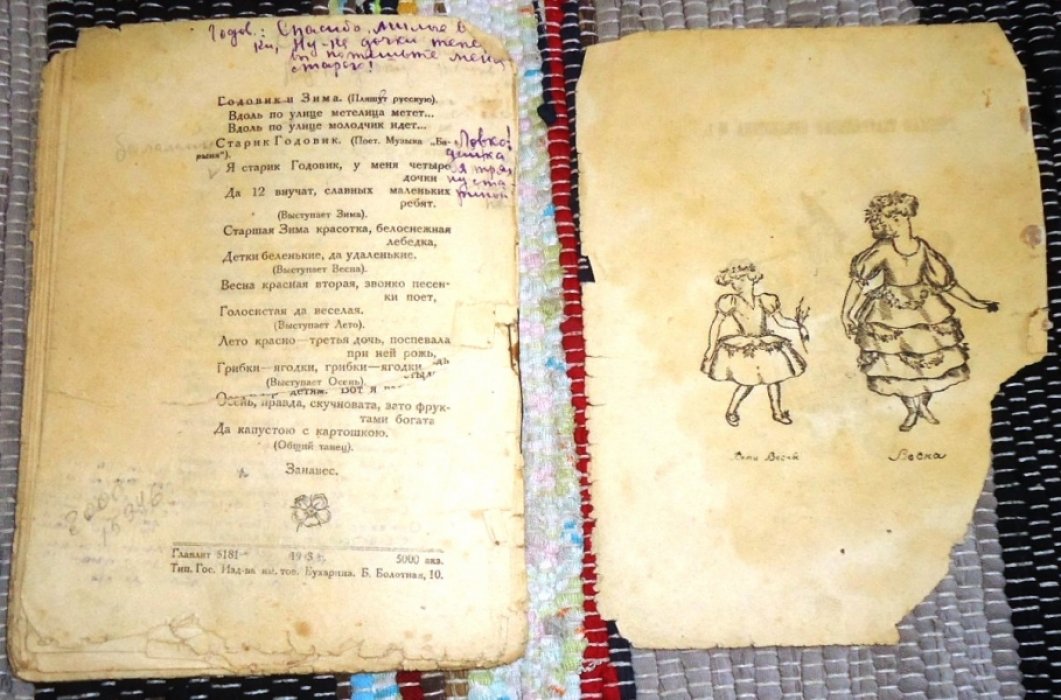 Годов.: Спасибо, милые в
ки, Ну-ка дочки тепе
потешьте меня
старого!
Годовик и Зима. (Пляшут русскую).
Вдоль по улице метелица метет...
Вдоль по улице молодчик идет...
Старик Годовик. (Поет. Музыка „Ба-
рыня“).
Я старик Годовик, у меня четыре
дочки
Да 12 внучат, славных маленьких
ребят.
(Выступает Зима).
Старшая Зима красотка, белоснежная
лебедка,
Детки беленькие, да удаленькие.
(Выступает Весна).
Весна красная вторая, звонко песен-
ки поет,
Голосистая да веселая.
(Выступает Лето).
Лето красно—третья дочь, поспевала
при ней рожь,
Грибки—ягодки, грибки—ягодки
(Выступает Осень).
детям. Вот я
Осень, правда, скучновата, зато фрук-
тами богата
Да капустою с картошкою.
(Общий танец).
Занавес.
Главлит 5181 5000 экз.
Тип. Гос. Изд-ва им. тов. Бухарина. Б. Болотная, 10.
Ловко!
Весны
Весна